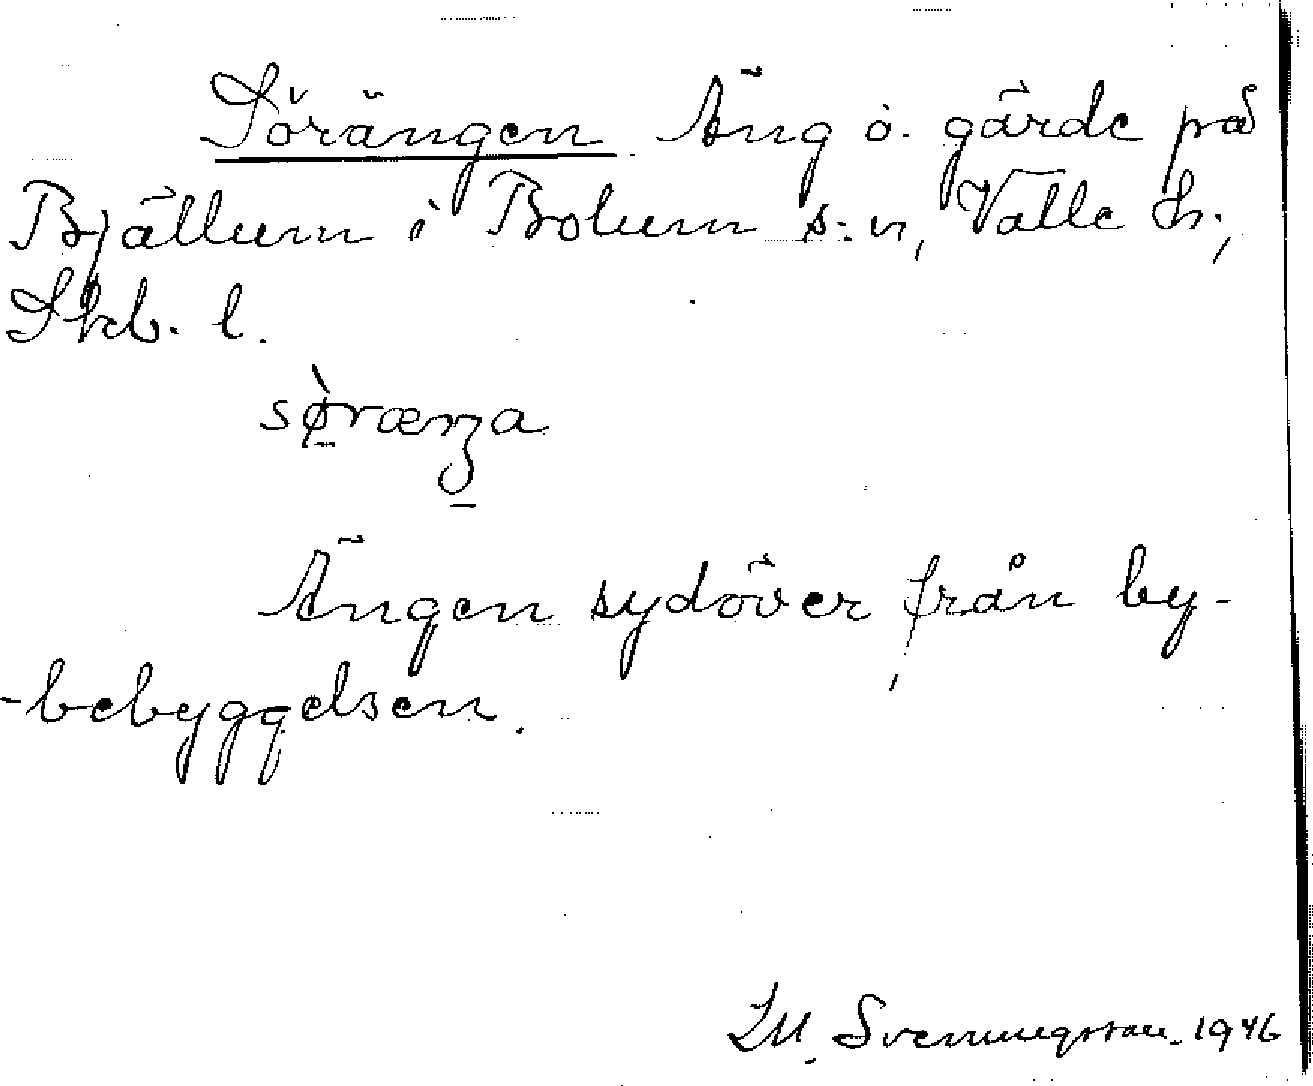 Sörängen. Äng o. gärde på
Bjällum i Bolum s:n, Valle h.,
Skb. l.
sø̀ræŋa
Ängen sydöver från by-
-bebyggelsen.
Svenningsson 1946